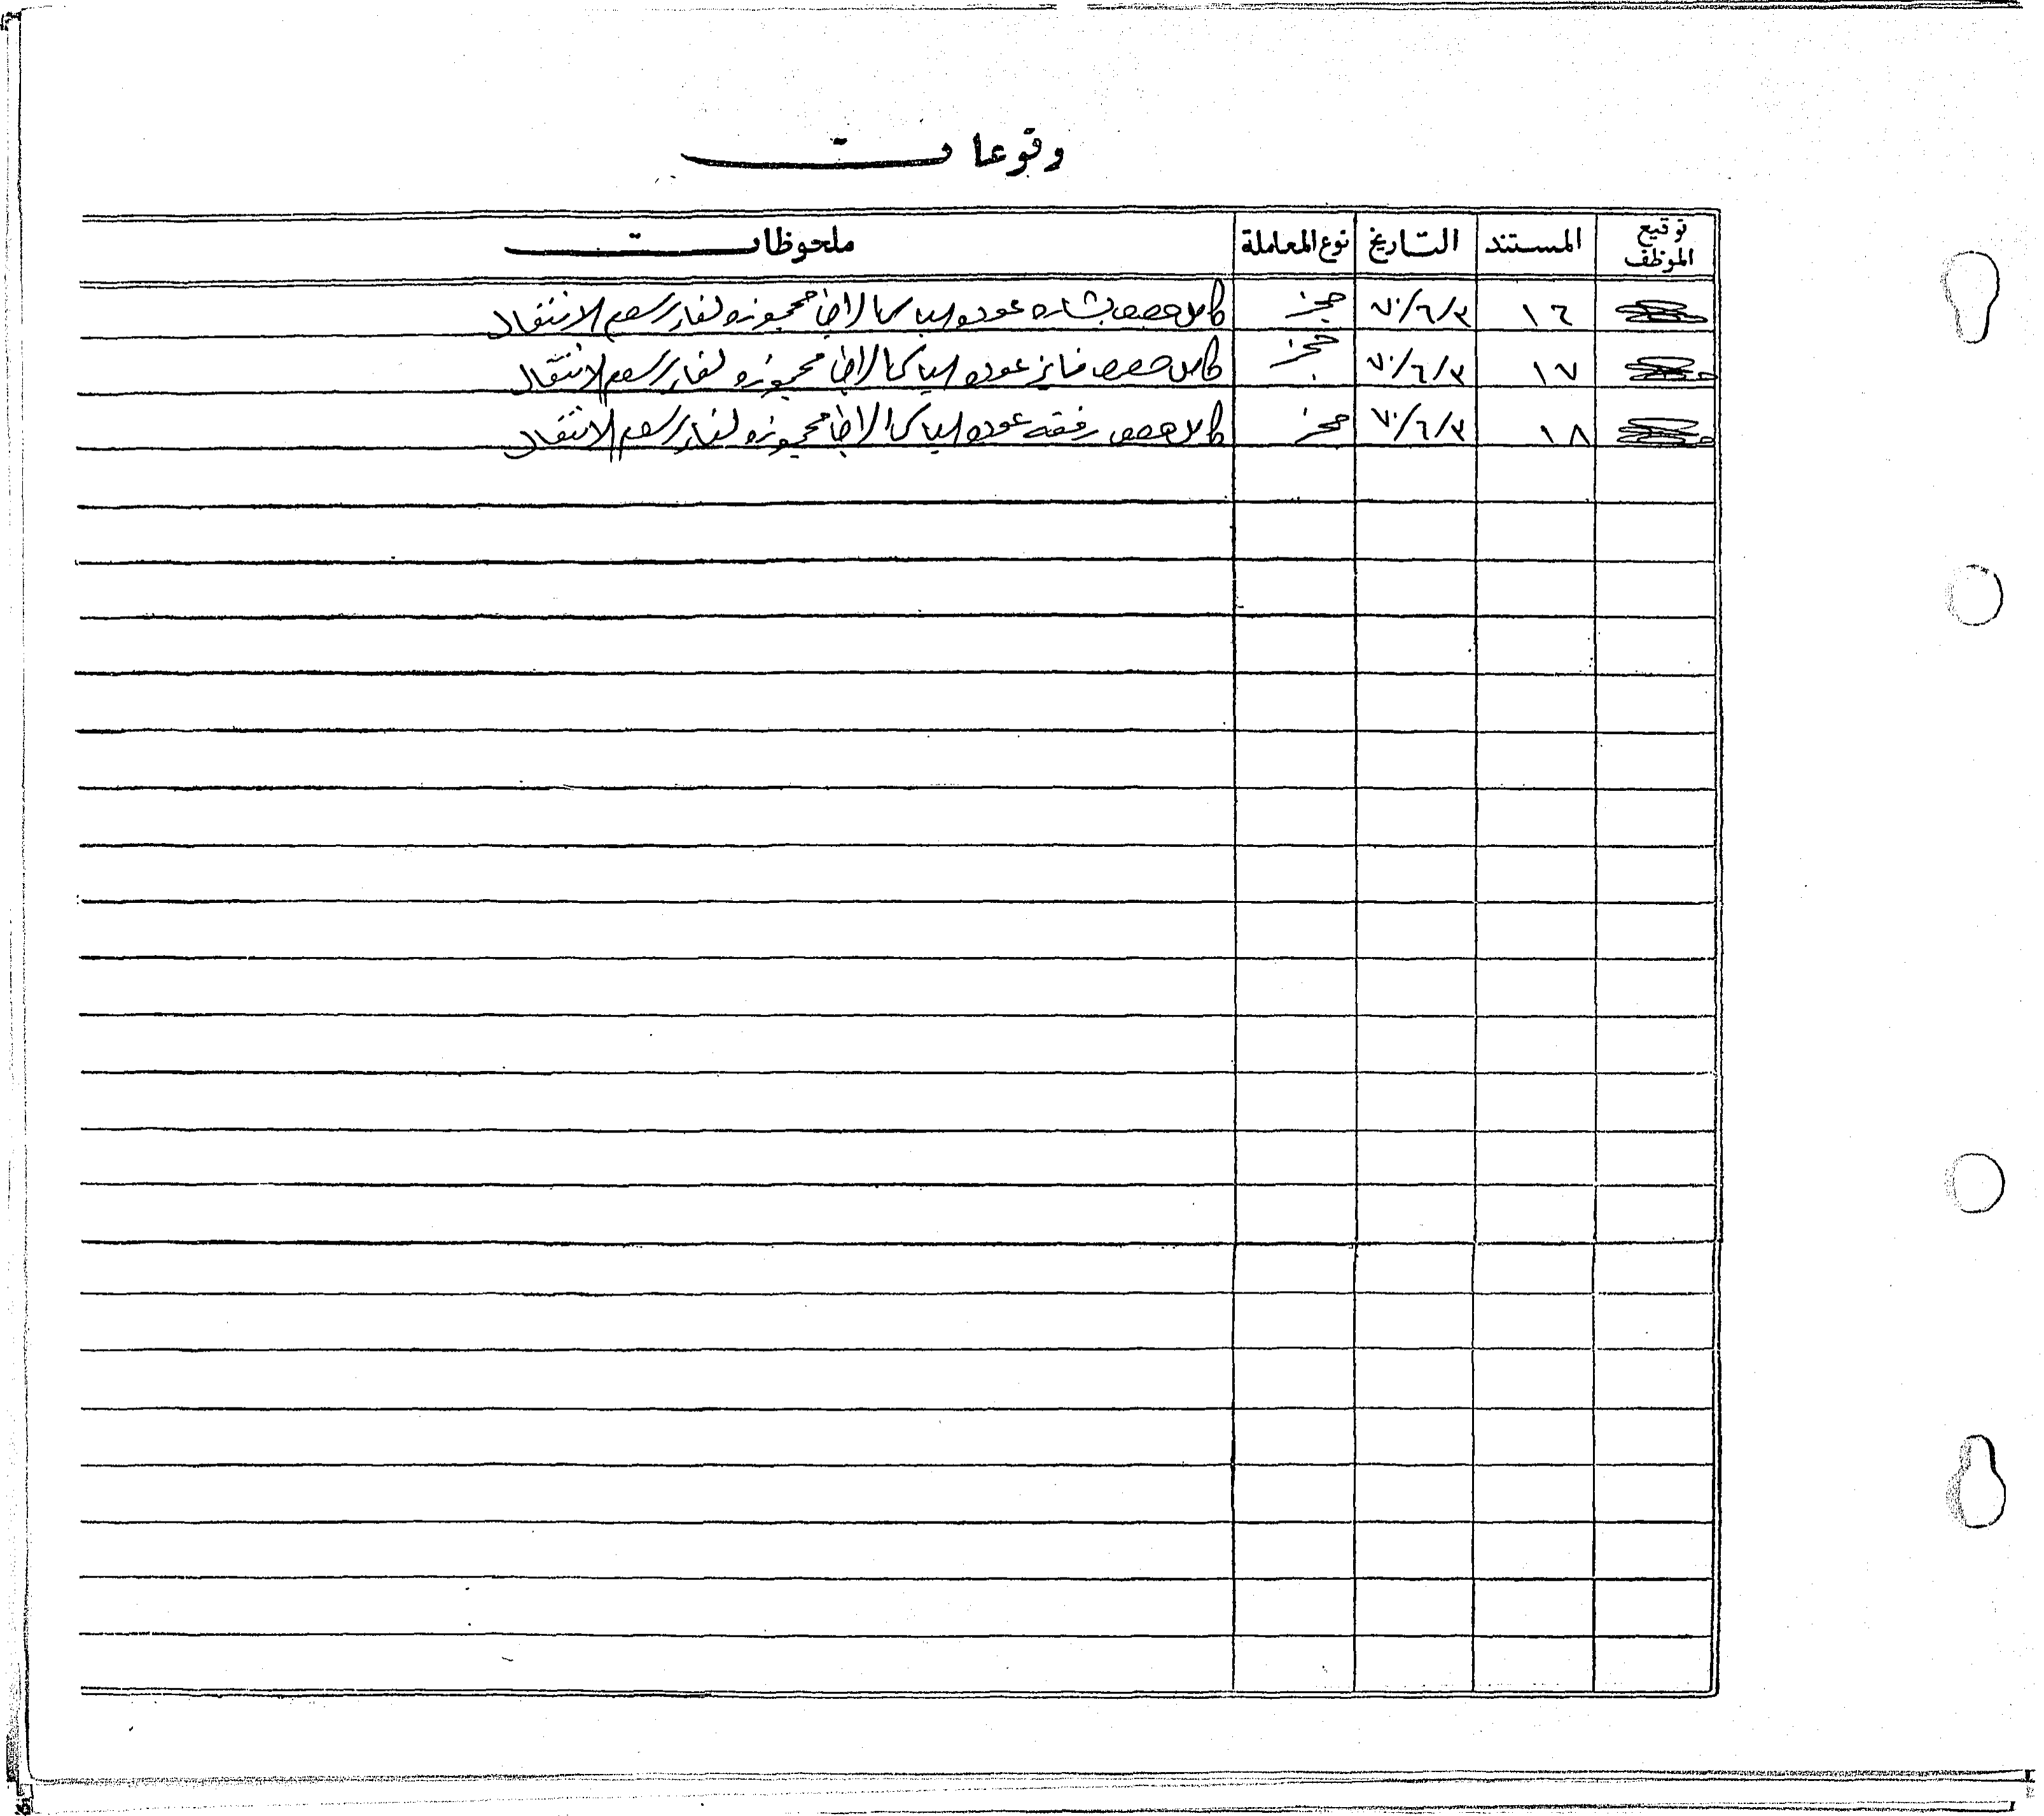 وقوعات
توقيع الموظف المستند التاريخ نوع المعاملة ملحوظات
١٦ ٧٠/٦/٣ حجز كامل حصص بشاره عوده الياس الراضي محجوزه لقاء رسم الانتقال
١٧ ٧٠/٦/٣ حجز كامل حصص فايز عوده الياس الراضي محجوزه لقاء رسم الانتقال
١٨ ٧٠/٦/٣ حجز كامل حصص رفقه عوده الياس الراضي محجوزه لقاء رسم الانتقال